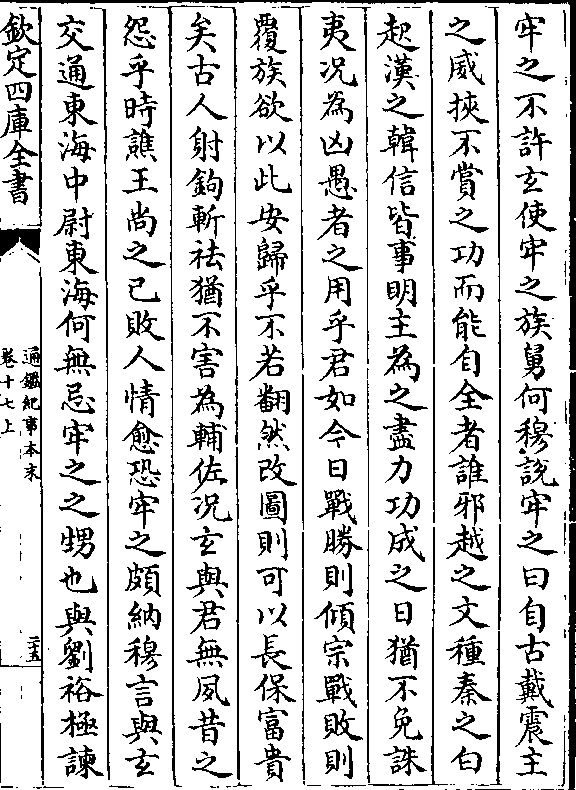 牢之不許玄使牢之族舅何穆說牢之曰自古戴震主
之威挾不賞之功而能自全者誰邪越之文種秦之白
起漢之韓信皆事明主為之盡力功成之日猶不免誅
夷况為凶愚者之用乎君如今日戰勝則傾宗戰敗則
覆族欲以此安歸乎不若翻然改圖則可以長保富貴
矣古人射鉤斬祛猶不害為輔佐况玄與君無夙昔之
怨乎時譙王尚之已敗人情愈恐牢之頗納穆言與玄
交通東海中尉東海何無忌牢之之甥也與劉裕極諫
欽定四庫全書
通鑑紀事本末
卷十七上
二五